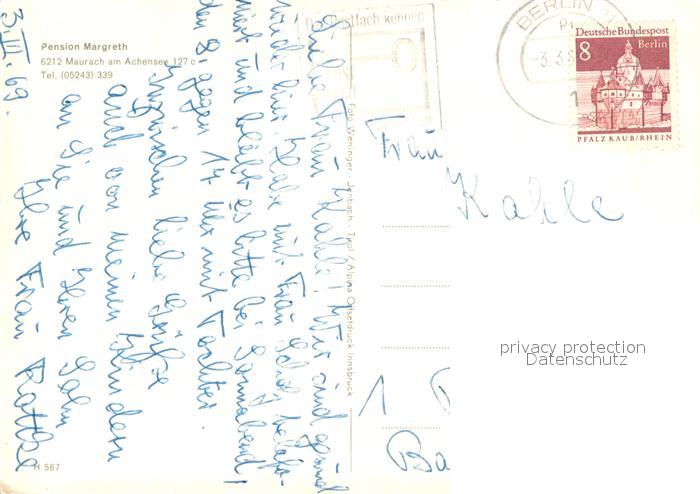 Pension Margreth
6212 Maurach am Achensee 127 c
Tel. (05243) 339
3.III.69.
Liebe Frau Kahle! Wir sind gesund
wieder hier. Habe mit Frau
und bleibt es bitte bei Sonnabend!
den 8. gegen 17 Uhr mit Tochter.
Inzwischen liebe Grüße
auch von meinen Kindern
an Sie und Ihren Sohn
Ihre Frau Rathke
H 567
Foto Weninger Jenbach - Tirol / Alpina Offsetdruck Innsbruck
Postfach kennen
BERLIN 11
-3.3.
1
Deutsche Bundespost
8 Berlin
PFALZ KAUB/RHEIN
Frau
Kahle
1
Ba
privacy protection
Datenschutz